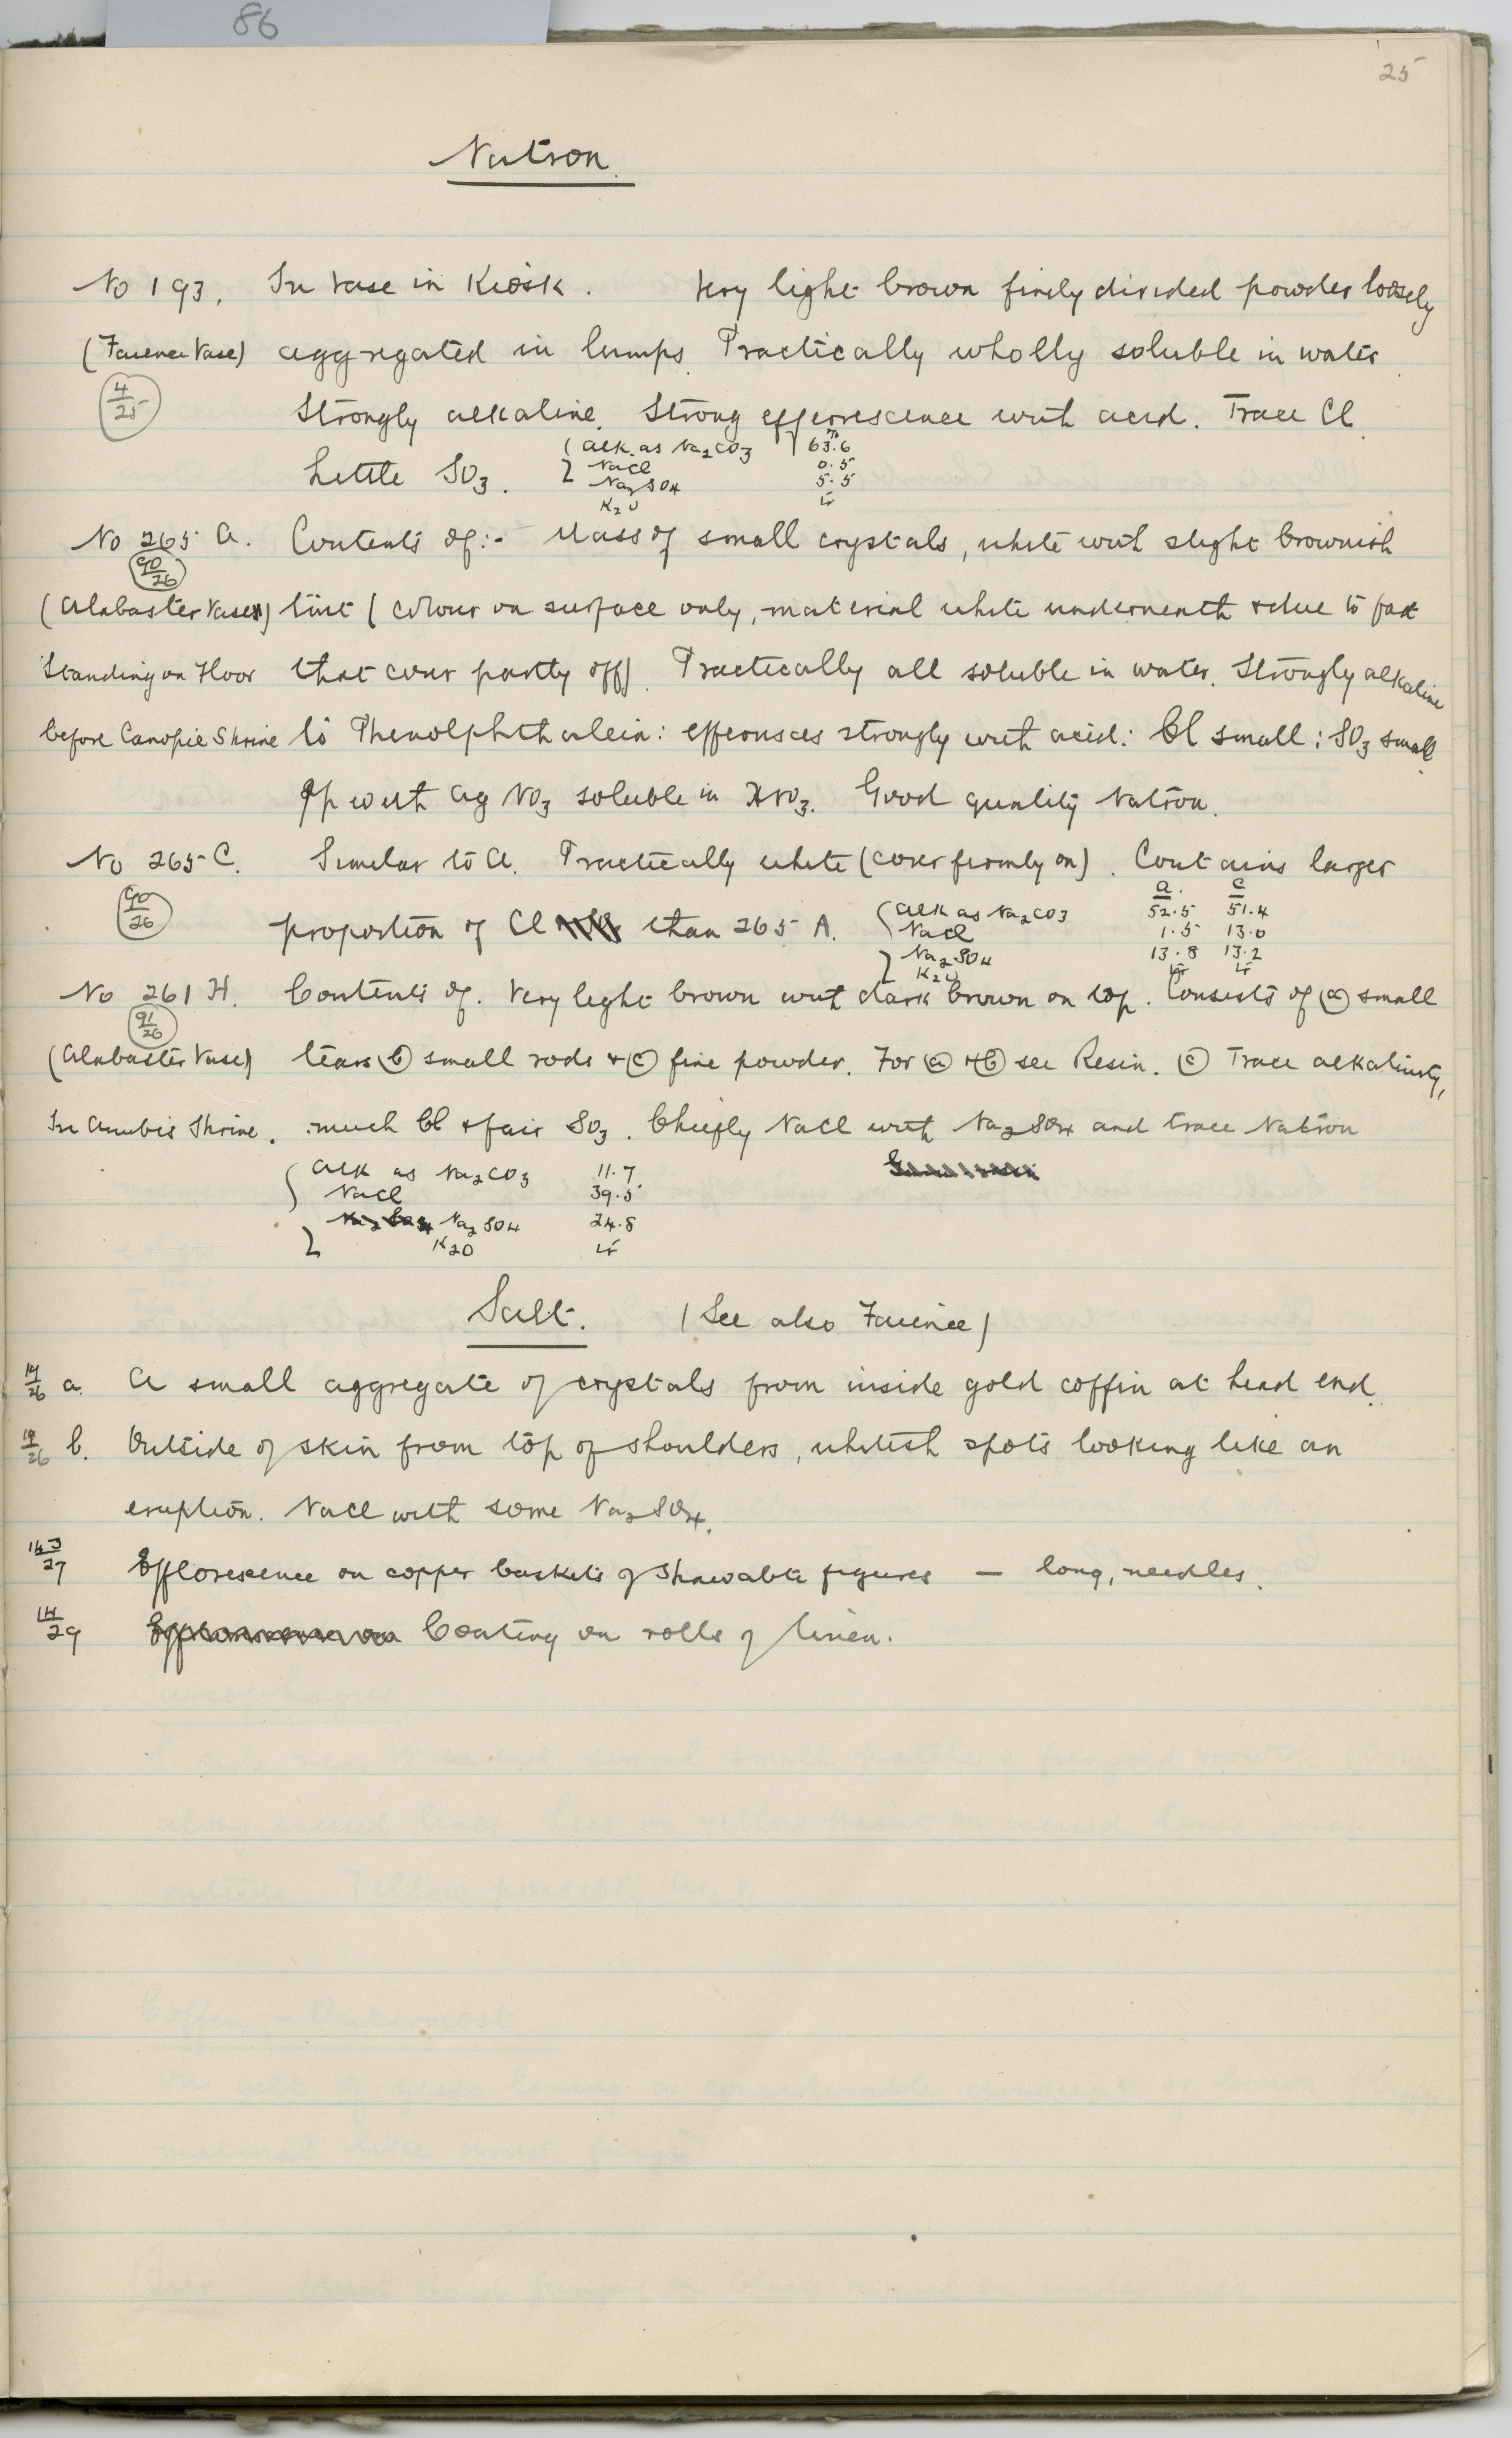 86
25
Natron.
No 193. In Vase in Kiosk. Very light brown finely divided powder loosely
(Faience Vase) aggregated in lumps. Practically wholly soluble in water
4/25 Strongly alkaline. Strong effervescence with acid. Trace Cl.
Little SO3.
Alk. as Na2CO3 63.6
NaCl 0.5
Na2SO4 5.5
K2O tr
No 265 A. Contents of:- Mass of small crystals, white with slight brownish
90/26
(Alabaster Vases) tint (colour on surface only, material white underneath & due to fact
Standing on Floor that cover partly off). Practically all soluble in water. Strongly alkaline
before Canopic Shrine to Phenolphthalein: effervesces strongly with acid: Cl small: SO3 small
Pp with AgNO3 soluble in HNO3. Good quality Natron.
No 265 C. Similar to A. Practically white (cover firmly on). Contains larger
90/26 proportion of Cl than 265 A.
A. C
Alk as Na2CO3 52.5 51.4
NaCl 1.5 13.0
Na2SO4 13.8 13.2
K2O tr tr
No 261 H. Contents of. Very light brown with dark brown on top. Consists of (a) small
91/26
(Alabaster Vase) tears (b) small rods & (c) fine powder. For (a) & (b) see Resin. (c) Trace alkalinity,
In Anubis Shrine. much Cl & fair SO3. Chiefly NaCl with Na2SO4 and trace Natron
Alk as Na2CO3 11.7
NaCl 39.5
Na2SO4 24.8
K2O tr
Salt. (See also Faience)
14/26 a. A small aggregate of crystals from inside gold coffin at head end.
18/26 b. Outside of skin from top of shoulders, whitish spots looking like an
eruption. NaCl with some Na2SO4.
27 Efflorescence on copper baskets of Shawabti figures — long, needles.
14/29 Coating on rolls of linen.